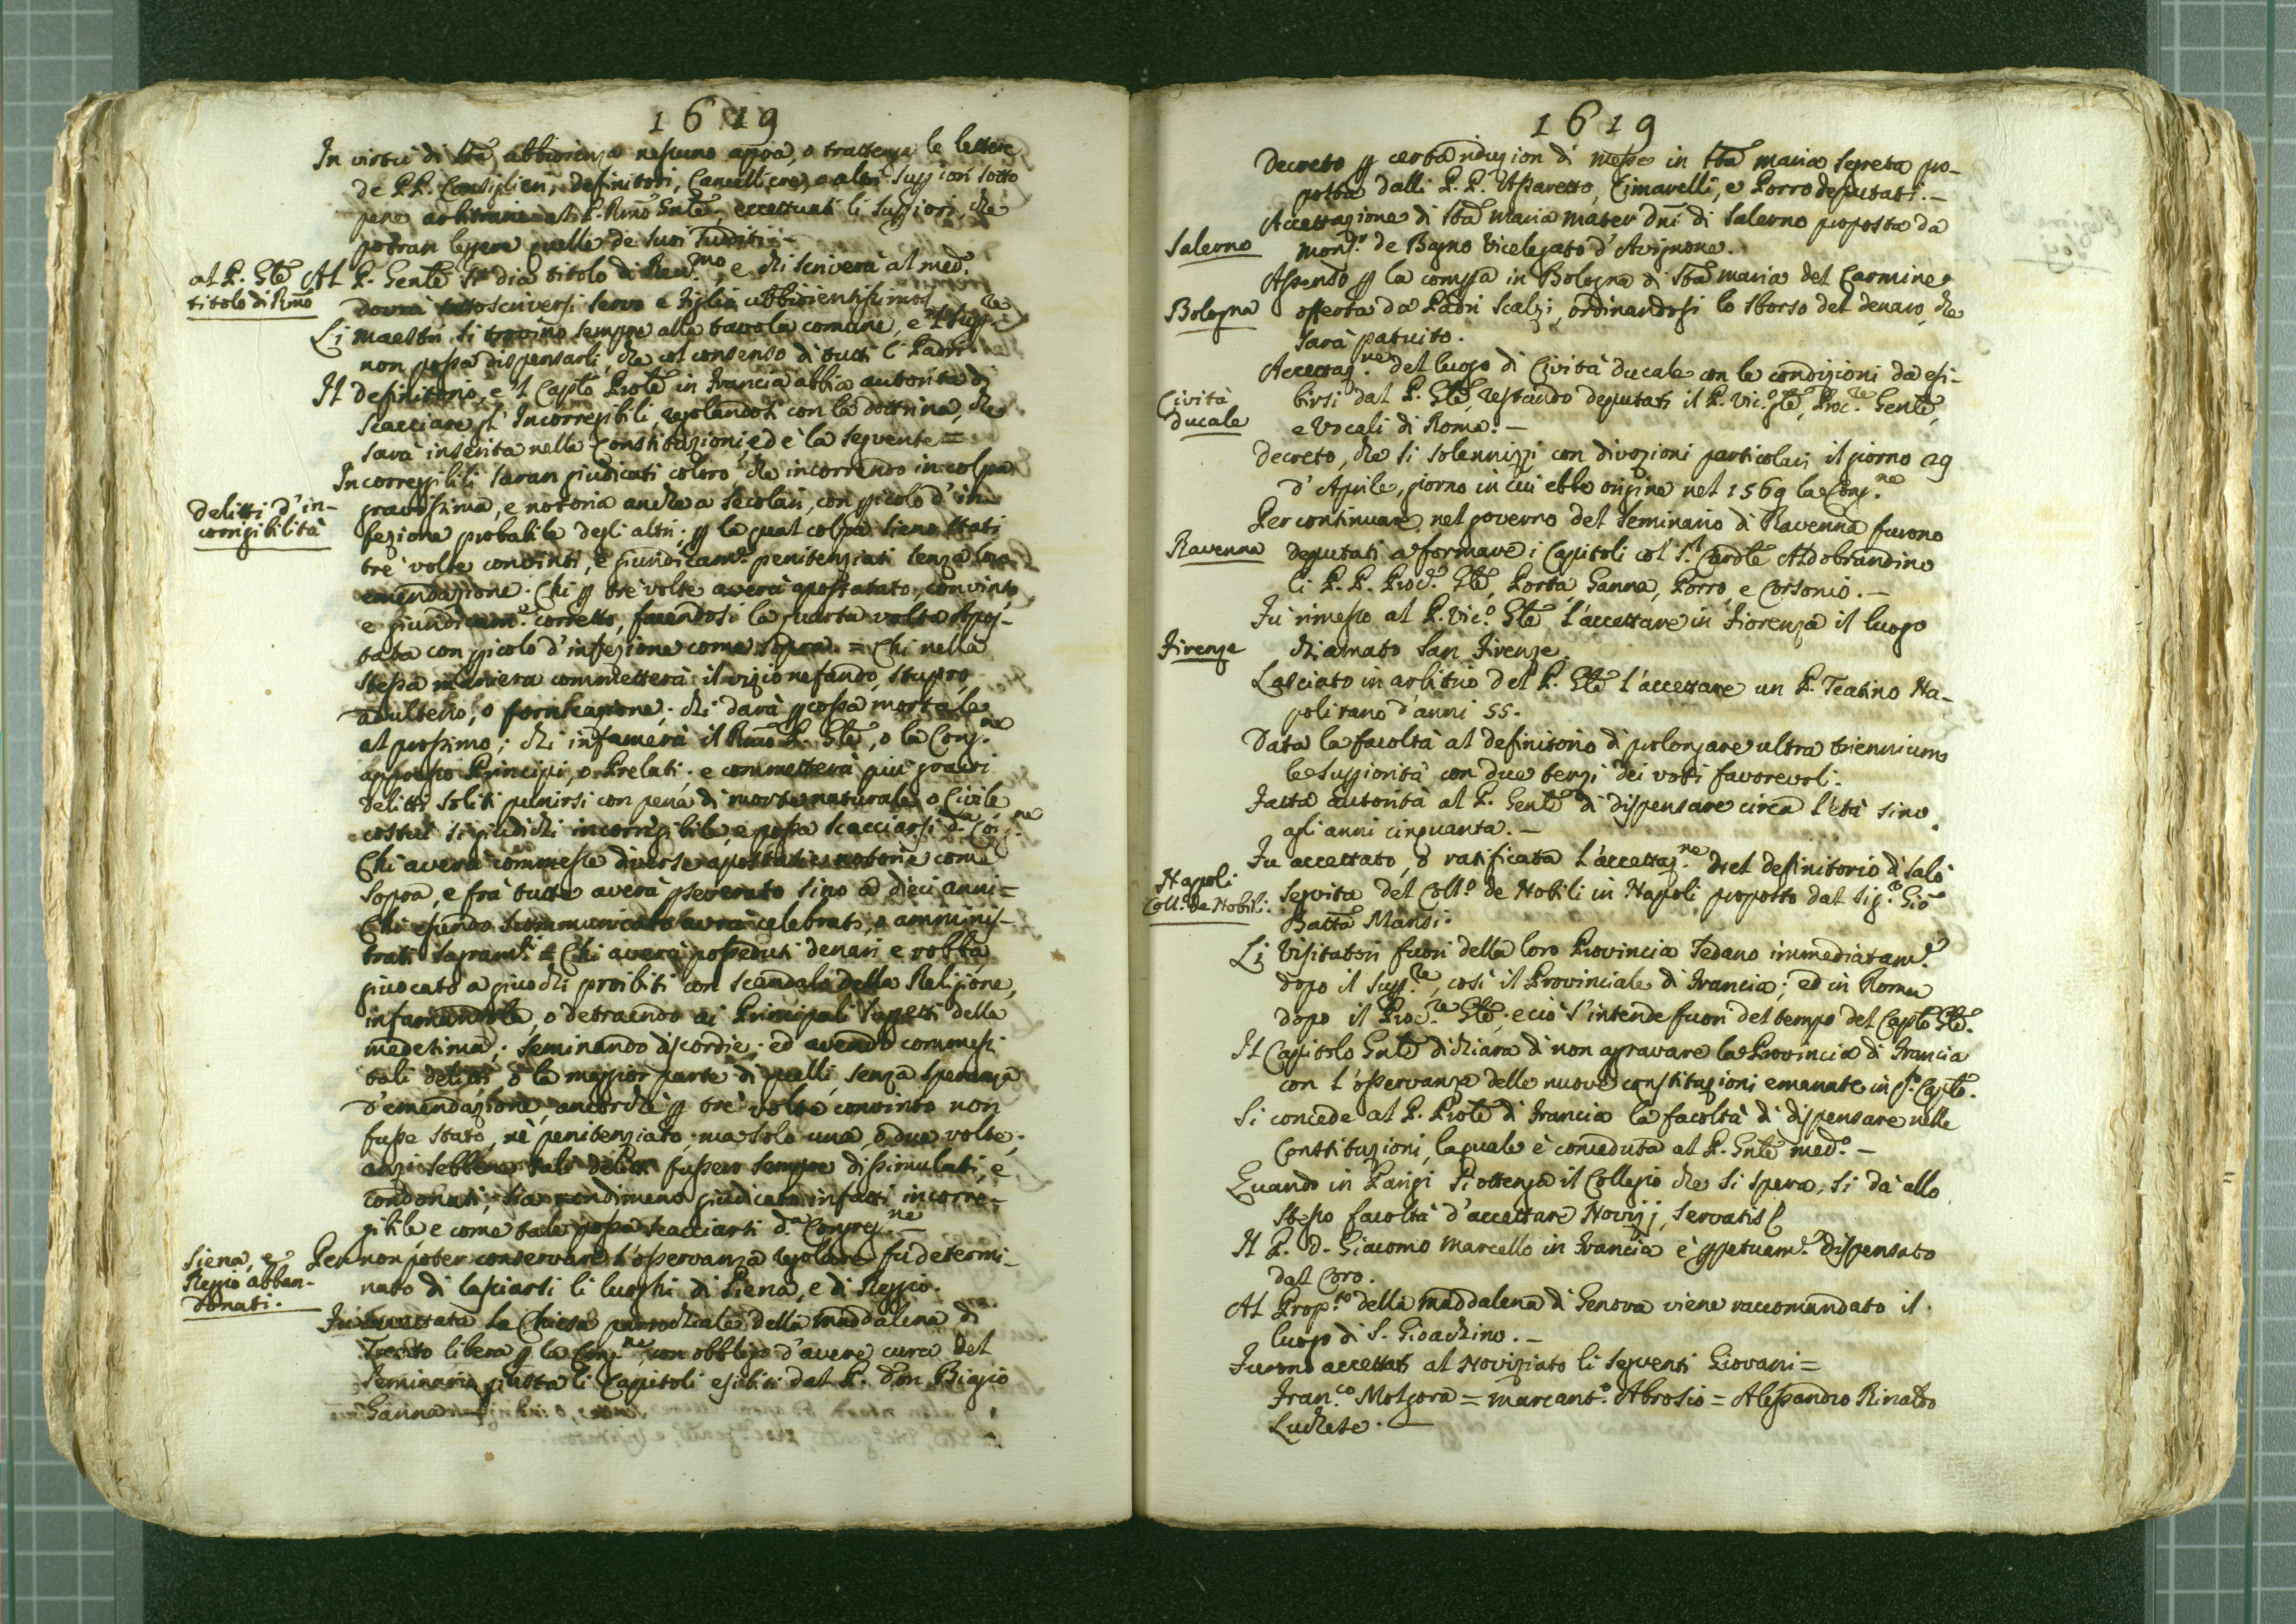 1619
In virtù di Sta ubbidienza nessuno appra, o trattenga le lettere
de PP. Consiglieri, definitori, Cancelliere, o altri Suppiori sotto
pene arbitrarie al P. Rmo Gnle, eccettuati li Suppiori, che
potran legere quelle de suoi sudditi.—
al P. Gle
titolo di Rmo
Al P. Genle se dia titolo di Reu.mo, e chi scriverà al med.
dovrà sottoscriversi servo e figlio ubbidientissimo
Li maestri si trovino sempre alla tavola comune, e 'l Supp.re
non possa dispensarli, che col consenso di tutti i Padri.
Il definitorio, e 'l Caplo Prole in Francia abbia autorità di
scacciare gl' Incorregibili, regolandosi con la dottrina, che
sarà inserita nelle constituzioni, ed è la seguente =
Incorreggibili saran giudicati coloro che incorrendo in colpa
delitti d' in-
corrigibilità
gravissima, e notoria anche a secolari, con picolo d' in-
fezione probabile degli altri; p la qual colpa sieno stati
trè volte convinti, e giuridicame. penitenziati senza loro
emendazione. Chi p trè volte averà apostatato, convinto
e giuridicam.e corretto, facendosi la quarta volta Apos-
tata con picolo d'infezione come sopra. = Chi nella
stessa maniera commetterà il vizio nefando, stupro,
adulterio, o fornicazione; chi darà pcossa mortale
al prossimo; chi infamerà il Rmo P. Gle, o la Cong.ne
appresso Principi, o Prelati; e commetterà più gravi
delitti soliti punirsi con pena di morte naturale, o Civile
costui si giudichi incorregibile, e possa scacciarsi d.a Cong.ne
Chi averà commesse diverse apostasie notorie come
sopra, e frà tutte averà pseverato sino a dieci anni =
Chi essendo scommunicato avrà celebrato, o amminis-
trati sagram.ti = Chi averà posseduti denari e robba,
giuocato a giuochi proibiti con scandalo della Religione,
infamandola, o detraendo ai Principali sugetti della
medesima; seminando discordie; ed avendo commessi
tali delitti, o la maggior parte di quelli, senza speranza
d'emendazione, ancorchè p trè volte convinto non
fusse stato, nè penitenziato, ma solo una, o due volte;
anzi sebbene tali delitti fussero sempre dissimulati, e
condonati, sia nondimeno giudicato infatti incorre-
gibile, e come tale possa scacciarsi d.a Congreg.ne—
Siena, e
Reggio abban-
donati.
Per non poter conservare l'osservanza regolare fù determi-
nato di lasciarsi li luoghi di Siena, e di Reggio.
Fù accettata la Chiesa parrochiale della Maddalena di
Trento libera p la Cong.ne, con obbligo d'avere cura del
Seminario giusta li Capitoli esibiti dal P. don Bigio
Ganna—
1619
Decreto p certa riduzion di Messe in Sta Maria Segreta pro-
posta dalli P. P. Assaretto, Cimarelli, e Porro deputati.—
Accettazione di Sta Maria mater Dni di Salerno proposta da
Salerno
Mons.r de Bagno Vicelegato d'Avignone.
Assenso p la compra in Bologna di Sta Maria del Carmine
Bologna
offerta da Padri Scalzi, ordinandosi lo sborso del denaro, che
sarà patuito.
Accettaz.ne del luogo di Civita ducale con le condizioni da esi-
Cività
ducale
birsi dal P. Gle, restando deputati il P. Vic.o Gle, Proc.re Genle,
e Vocali di Roma.—
Decreto, che si solennizzi con divozioni particolari il giorno 29
d' Aprile, giorno in cui ebbe origine nel 1569 la Cong.ne
Per continuare nel governo del Seminario di Ravenna furono
Ravenna
deputati a formare i Capitoli col S.r Cardle Aldobrandino
li P. P. Proc.r Gle, Porta, Ganna, Porro, e Corsonio.—
Fù rimesso al P. Vic.o Gle l'accettare in Fiorenza il luogo
Firenze
chiamato San Firenze.
Lasciato in arbitrio del P. Gle l'accettare un P. Teatino Na-
politano d'anni 55.
Data la facoltà al definitorio di prolongare ultra triennium
le Suppiorità con due terzi dei voti favorevoli.
Fatta autorità al P. Genle di dispensare circa l'età sino
agli anni cinquanta.—
Fu accettato, o ratificata l'accettaz.ne del definitorio di Salò
Napoli
Coll.o de Nobili.
seguita del Coll.o de Nobili in Napoli proposto dal Sig.r Gio
Batta Manso.
Li Visitatori fuori della loro Provincia sedano immediatam.e
dopo il Supp.re, così il Provinciale di Francia; ed in Roma
dopo il Proc.re Gle; e ciò s'intende fuori del tempo del Caplo Gle.
Il Capitolo Gnle dichiara di non agravare la Provincia di Francia
con l'osservanza delle nuove constituzioni emanate in qsto Caplo.
Si concede al P. Prole di Francia la facoltà di dispensare nelle
Constituzioni, laquale è conceduta al P. Gnle med.o—
Quando in Parigi si ottenga il Collegio che si spera, si dà allo
stesso facoltà d'accettare Novizj, servatis
Il P. D. Giacomo Marcello in Francia è ppetuam.e dispensato
dal Coro.
Al Prop.to della Maddalena di Genova viene raccomandato il
luogo di S. Gioachino.—
Furono accettati al Noviziato li seguenti Giovani =
Fran.co Molgora = Marcant.o Abrosio = Alessandro Rinaldo
Luchese.—